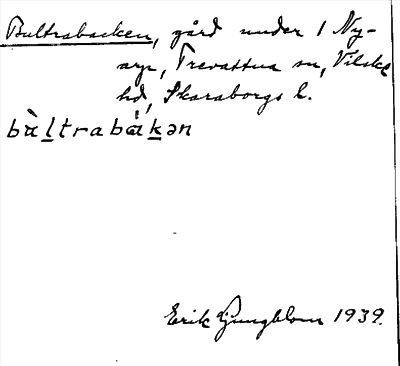 Bultrabacken, gård under 1 Ny-
arp, Trevattna sn, Vilske
hd, Skaraborgs l.
bu̇̀l̲trabák̲ən
Erik Ljungblom 1939.